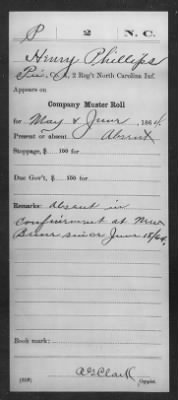 P 2 N. C.
Henry Phillips
Pvt., Co. A, 2 Reg't North Carolina Inf.
Appears on
Company Muster Roll
for May & June, 1864.
Present or absent Absent
Stoppage, $ 100 for
Due Gov't, $ 100 for
Remarks: Absent in
confinement at New
Berne since June 18/64.
Book mark:
(359) A G Clark
Copyist.